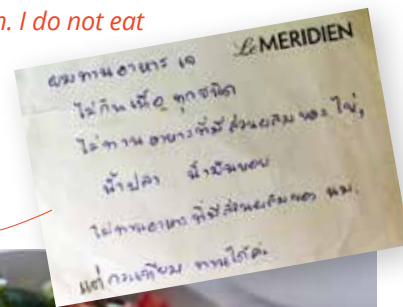 n. I do not eat
Le MERIDIEN
ผมทานอาหาร เจ
ไม่กินเนื้อ ทุกชนิด
ไม่ทาน อาหารที่มี ส่วนผสม ของ ไข่,
น้ำปลา น้ำมันหอย
ไม่ทานอาหาร ที่มี ส่วนผสมของ นม.
แต่ กระเทียม ทานได้ค่ะ